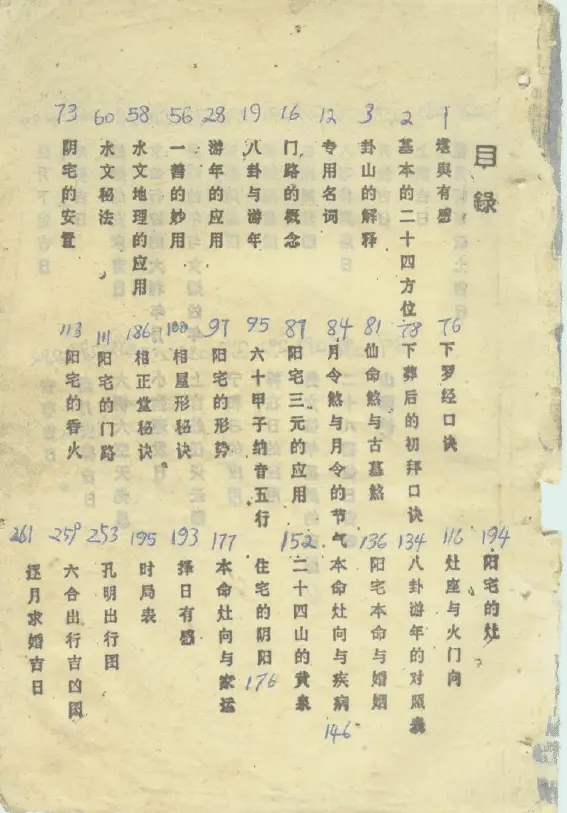 目錄
1
堪與有感
2
基本的二十四方位
3
卦山的解释
12
专用名词
16
门路的概念
19
八卦与游年
28
游年的应用
56
一善的妙用
58
水文地理的应用
60
水文秘法
73
阴宅的安置
76
下罗经口诀
78
下葬后的初拜口诀
81
仙命煞与古墓煞
84
月令煞与月令的节气
87
阳宅三元的应用
95
六十甲子纳音五行
97
阳宅的形势
相屋形秘诀
186
相正堂秘诀
111
阳宅的门路
113
阳宅的香火
194
阳宅的灶
116
灶座与火门向
134
八卦游年的对照表
136
阳宅本命与婚姻
本命灶向与疾病
146
152
二十四山的黄泉
住宅的阴阳
176
177
本命灶向与家运
193
择日有感
195
时局表
253
孔明出行图
259
六合出行吉凶图
261
逐月求婚吉日